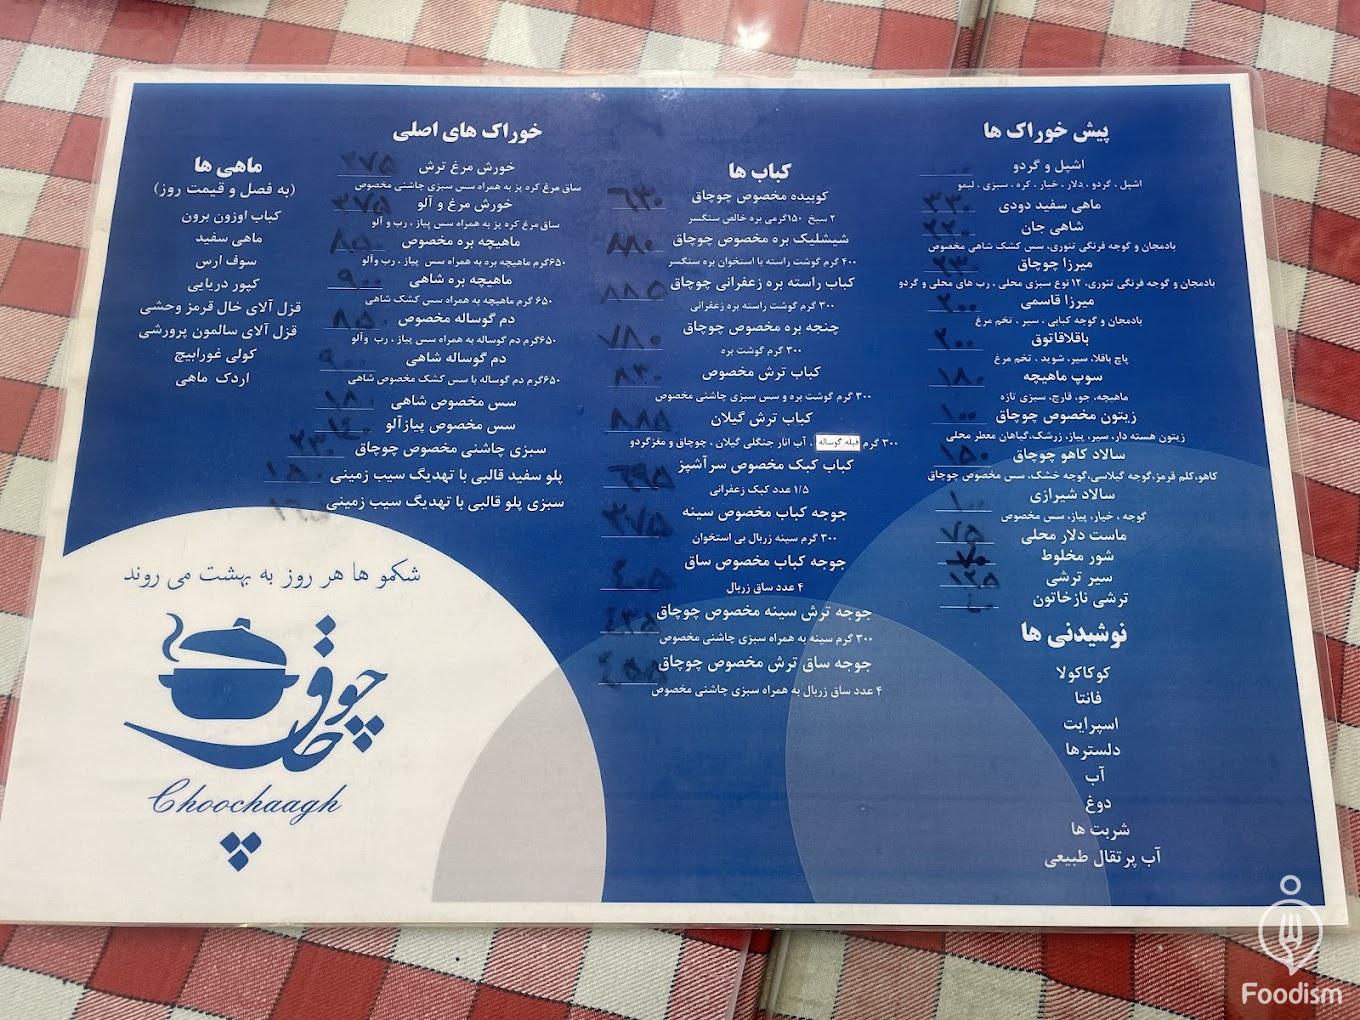 پیش خوراک ها
اشپل و گردو
اشپل ، گردو ، دلار ، خیار ، کره ، سبزی ، لیمو
ماهی سفید دودی ۳۳۰
شاهی جان ۲۲۰
بادمجان و گوجه فرنگی تنوری، سس کشک شاهی مخصوص
میرزا چوچاق
بادمجان و گوجه فرنگی تنوری، ۱۲ نوع سبزی محلی ، رب های محلی و گردو
میرزا قاسمی ۲۰۰
بادمجان و گوجه کبابی ، سیر ، تخم مرغ
باقلاقاتوق ۲۰۰
پاچ باقلا، سیر، شوید ، تخم مرغ
سوپ ماهیچه ۱۸۰
ماهیچه، جو، قارچ، سبزی تازه
زیتون مخصوص چوچاق ۱۰۰
زیتون هسته دار، سیر، پیاز، زرشک،گیاهان معطر محلی
سالاد کاهو چوچاق ۱۵۰
کاهو،کلم قرمز،گوجه گیلاسی،گوجه خشک، سس مخصوص چوچاق
سالاد شیرازی ۱۰۰
گوجه ، خیار، پیاز، سس مخصوص
ماست دلار محلی ۷۵
شور مخلوط ۷۰
سیر ترشی ۱۲۵
ترشی نازخاتون
نوشیدنی ها
کوکاکولا
فانتا
اسپرایت
دلسترها
آب
دوغ
شربت ها
آب پرتقال طبیعی
کباب ها
کوبیده مخصوص چوچاق ۶۳۰
۲ سیخ ۱۵۰گرمی بره خالص سنگسر
شیشلیک بره مخصوص چوچاق ۸۸۰
۴۰۰ گرم گوشت راسته با استخوان بره سنگسر
کباب راسته بره زعفرانی چوچاق ۸۸۵
۳۰۰ گرم گوشت راسته بره زعفرانی
چنجه بره مخصوص چوچاق ۷۸۰
۳۰۰ گرم گوشت بره
کباب ترش مخصوص ۸۳۰
۳۰۰ گرم گوشت بره و سس سبزی چاشنی مخصوص
کباب ترش گیلان ۸۸۵
۳۰۰ گرم فیله گوساله ، آب انار جنگلی گیلان ، چوچاق و مغزگردو
کباب کبک مخصوص سرآشپز ۶۹۵
۱/۵ عدد کبک زعفرانی
جوجه کباب مخصوص سینه ۳۷۵
۳۰۰ گرم سینه زربال بی استخوان
جوجه کباب مخصوص ساق ۴۰۵
۴ عدد ساق زربال
جوجه ترش سینه مخصوص چوچاق ۴۳۵
۳۰۰ گرم سینه به همراه سبزی چاشنی مخصوص
جوجه ساق ترش مخصوص چوچاق ۴۵۵
۴ عدد ساق زربال به همراه سبزی چاشنی مخصوص
خوراک های اصلی
خورش مرغ ترش ۳۷۵
ساق مرغ کره پز به همراه سس سبزی چاشنی مخصوص
خورش مرغ و آلو ۳۷۵
ساق مرغ کره پز به همراه سس پیاز ، رب و آلو
ماهیچه بره مخصوص ۸۵۰
۶۵۰گرم ماهیچه بره به همراه سس پیاز ، رب وآلو
ماهیچه بره شاهی ۹۰۰
۶۵۰ گرم ماهیچه به همراه سس کشک شاهی
دم گوساله مخصوص ۸۵۰
۶۵۰گرم دم گوساله به همراه سس پیاز ، رب وآلو
دم گوساله شاهی ۹۰۰
۶۵۰گرم دم گوساله با سس کشک مخصوص شاهی
سس مخصوص شاهی ۱۸۰
سس مخصوص پیازآلو
سبزی چاشنی مخصوص چوچاق ۲۳۰
پلو سفید قالبی با تهدیگ سیب زمینی ۱۵۰
سبزی پلو قالبی با تهدیگ سیب زمینی
ماهی ها
(به فصل و قیمت روز)
کباب اوزون برون
ماهی سفید
سوف ارس
کپور دریایی
قزل آلای خال قرمز وحشی
قزل آلای سالمون پرورشی
کولی غورابیج
اردک ماهی
شکمو ها هر روز به بهشت می روند
چوچاق
Choochaagh
Foodism